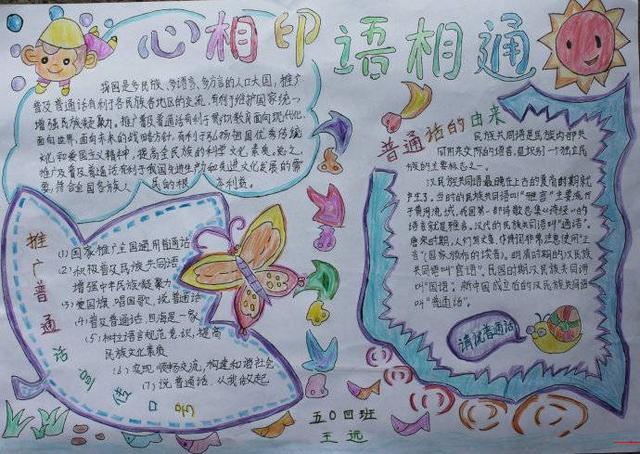 心相印 语相通
我国是多民族、多语言、多方言的人口大国，推广
普及普通话有利于各民族各地区的交流，有利于维护国家统一
增强民族凝聚力。推广普及普通话有利于贯彻教育面向现代化，
面向世界，面向未来的战略方针，有利于弘扬祖国优秀传统
文化和爱国主义精神，提高全民族的科学文化素质。总之，
推广及普及普通话有利于我国先进生产力和先进文化发展的需
要，符合全国各族人 民的根 本利益。
推广普通话宣传口号
(1)国家推广全国通用普通话
(2)积极普及民族共同语
增强中华民族凝聚力
(3)爱国旗，唱国歌，说普通话
(4)普及普通话，四海是一家
(5)树立语言规范意识，提高
民族文化素质
(6)实现顺畅交流，构建和谐社会
(7)说普通话，从我做起
普通话的由来
民族共同语是民族内部共
同用来交际的语言，是识别一个独立民
族的主要标志之一。
汉民族共同语最晚在上古的夏商时期就
产生了。当时的民族共同语叫“雅言”主要流行
于黄河流域，我国第一部诗歌总集《诗经》的
语言就是雅言。汉代的民族共同语叫“通语”。
唐宋时期，人们写文章、作诗词非常注意使用“正
音”（国家颁布的读音）。明清时期的汉民族
共同语叫“官话”。民国时期汉民族共同语
叫“国语”。新中国成立后的汉民族共同语
叫“普通话”。
请说普通话
五0四班
王远